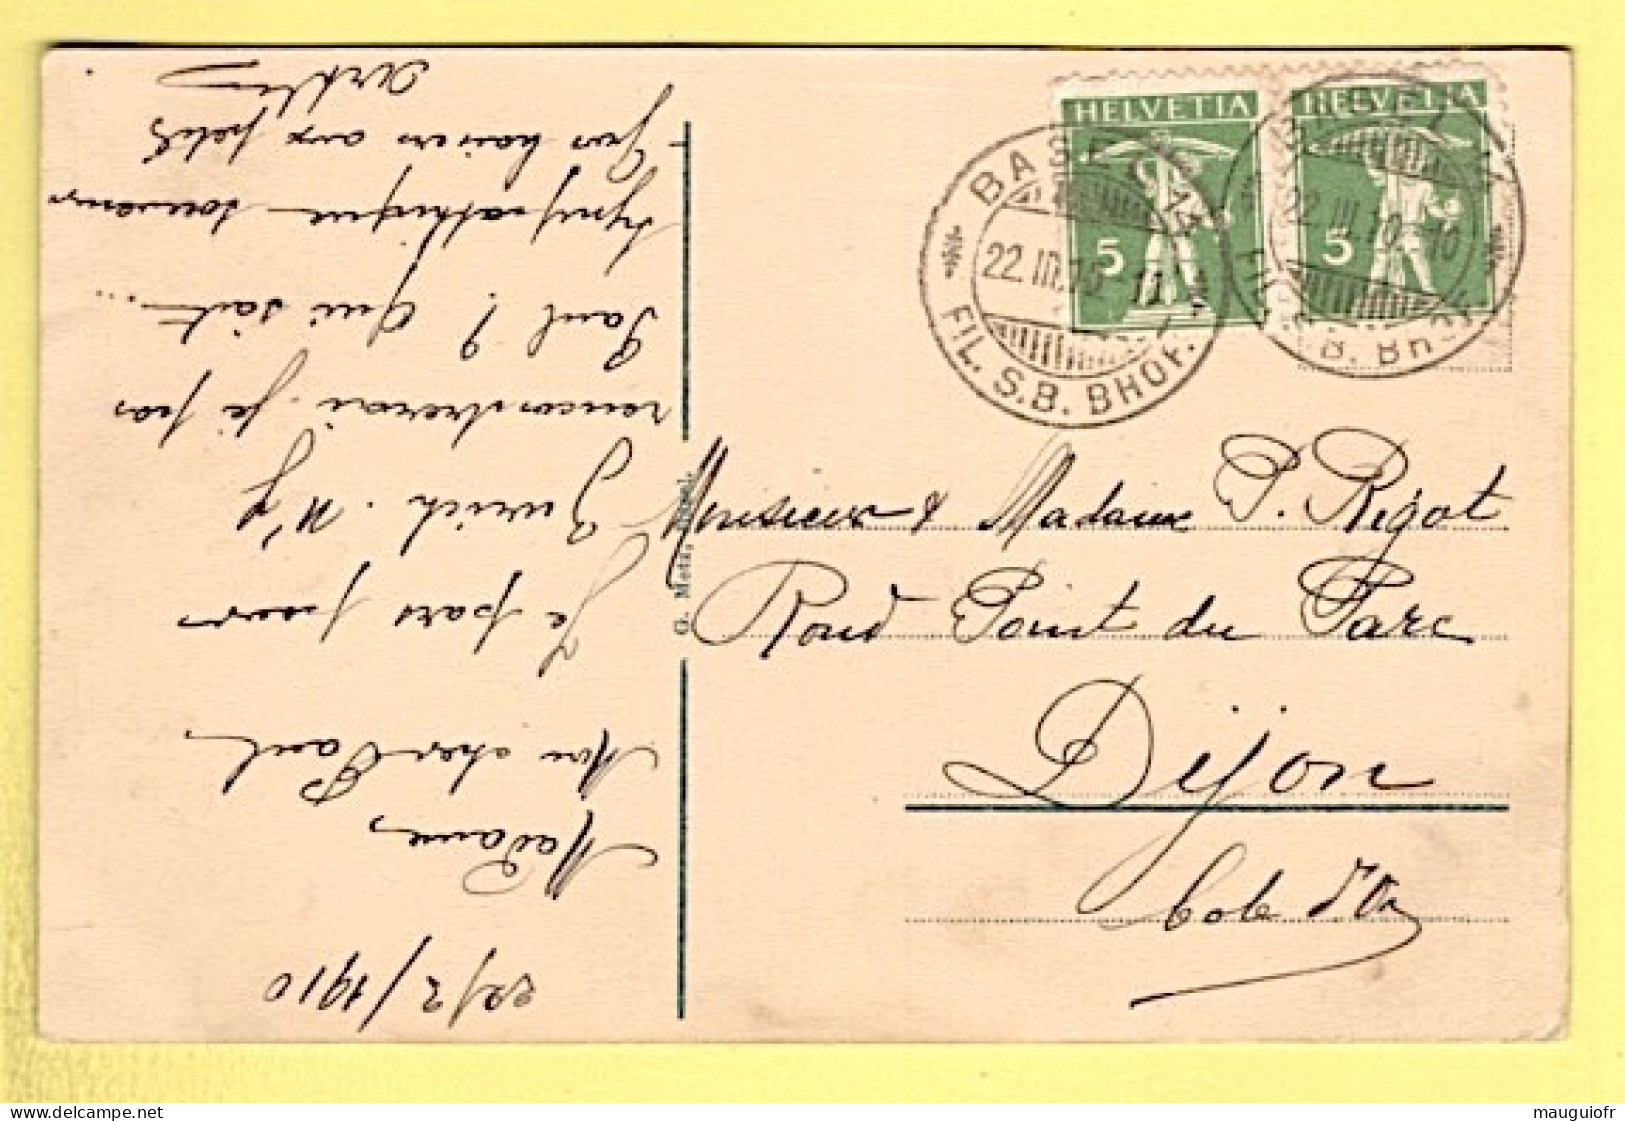 HELVETIA
5
HELVETIA
5
BASEL
22.III.10
FIL. S.B. BHOF.
22.III.10-10
B. BHOF
Monsieur & Madame P. Rigot
Rond Point du Parc
Dijon
Cote d'Or
G. Metz, Basel.
22/3/1910
Madame
Mon cher Paul
Je pars pour
Zurich. N'y
rencontrerai-je pas
Paul? Qui sait...
Sympathique souvenir
Gros baisers aux petits
mauguiofr
www.delcampe.net